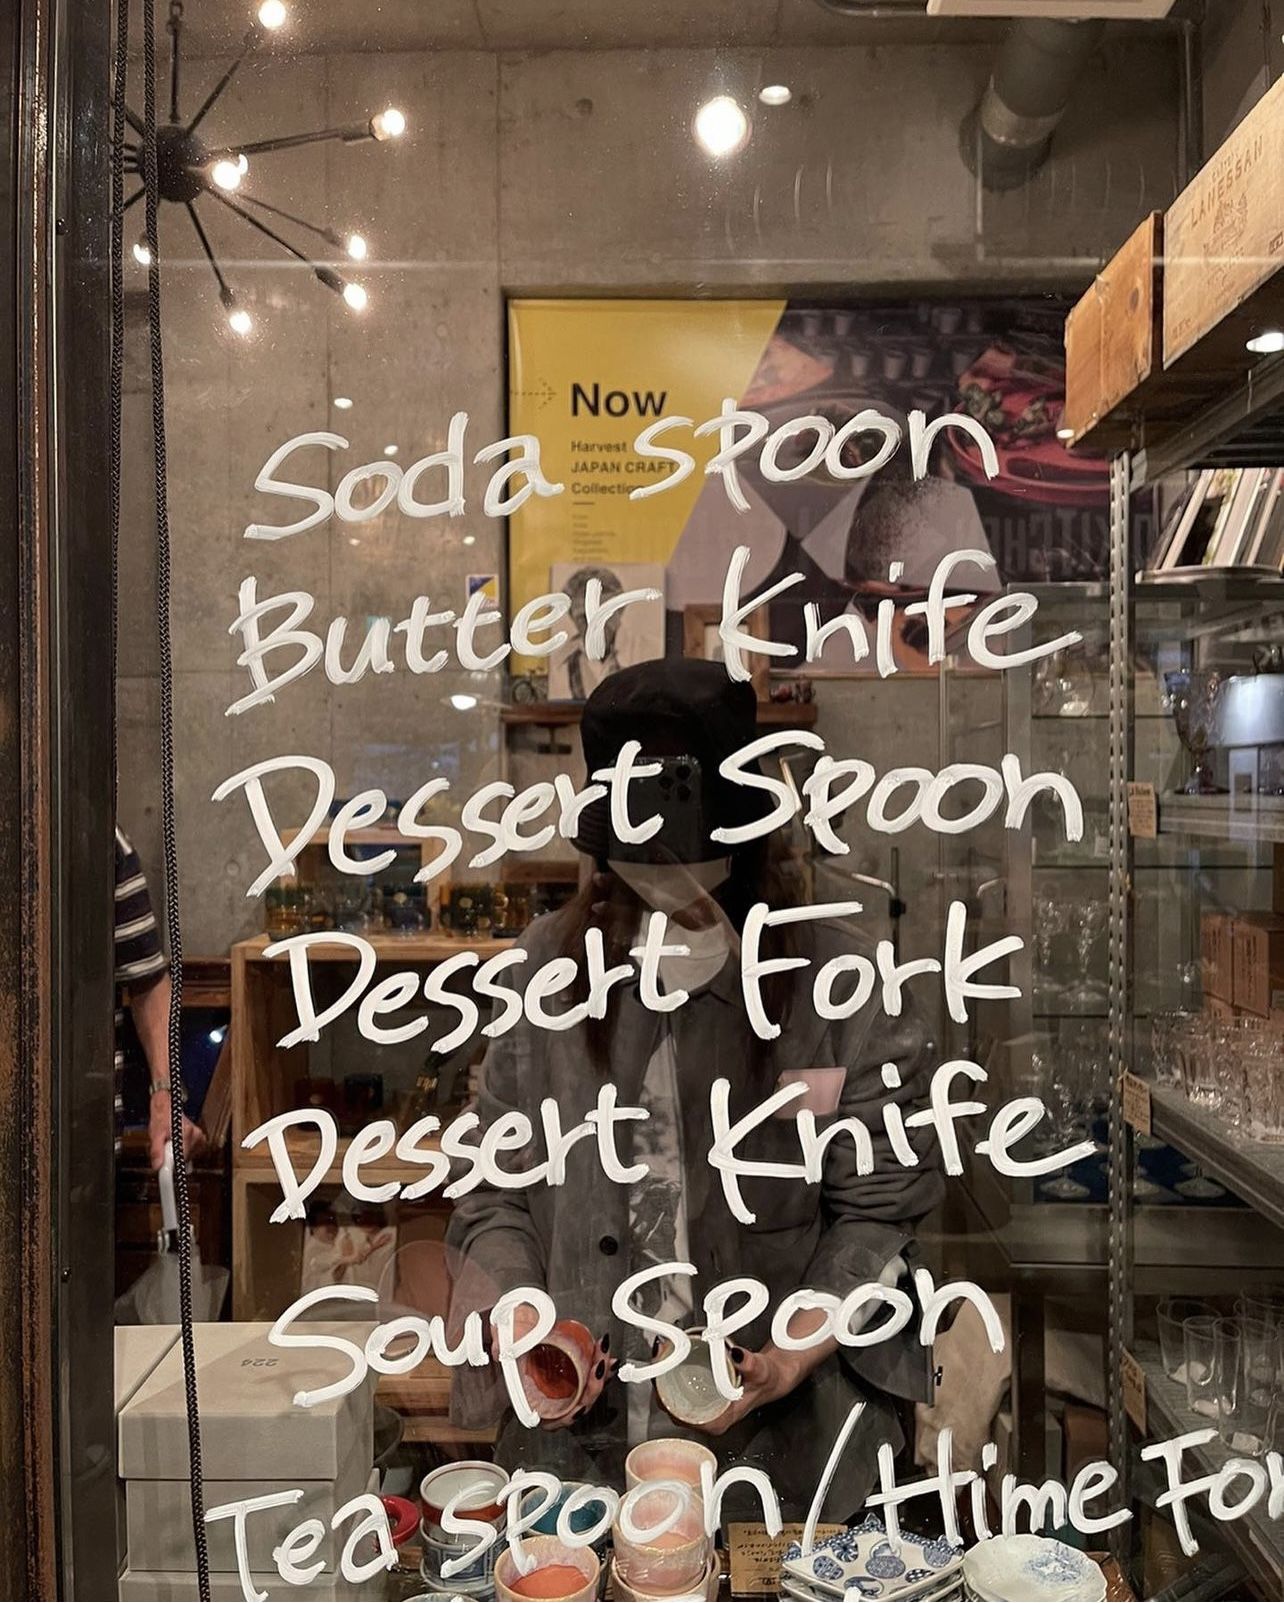 LANESSAN
Now
Harvest
JAPAN CRAFT
Collection
Soda spoon
Butter Knife
Dessert Spoon
Dessert Fork
Dessert Knife
Soup Spoon
Tea spoon / Hime For
224